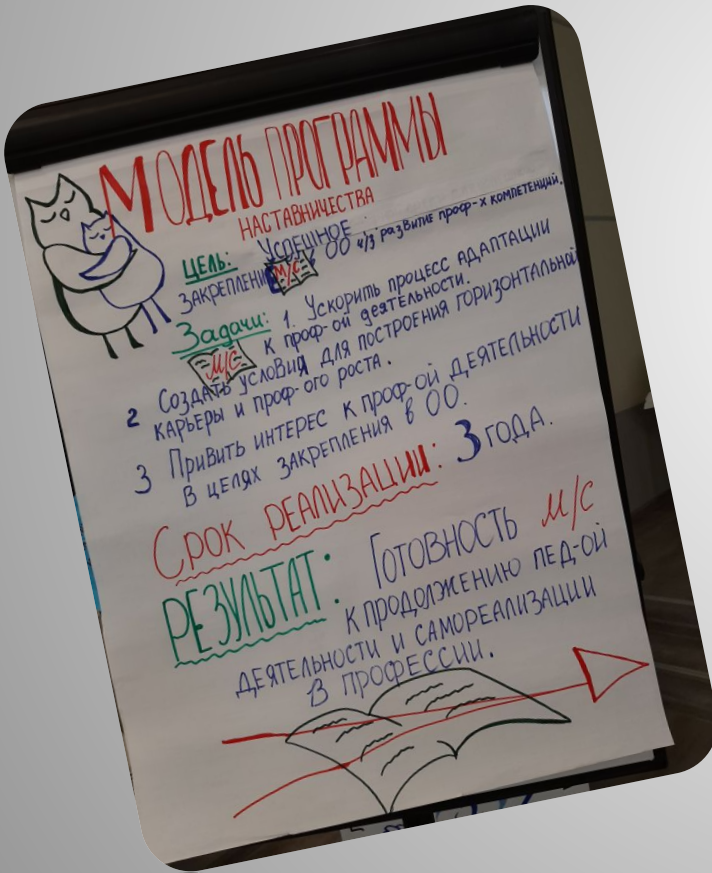 МОДЕЛЬ ПРОГРАММЫ
НАСТАВНИЧЕСТВА
ЦЕЛЬ: УСПЕШНОЕ
ЗАКРЕПЛЕНИ М/С В ОО ч/з развитие проф-х компетенций.
Задачи: 1. Ускорить процесс адаптации
М/С к проф-ой деятельности.
2 Создать условия для построения горизонтальной
карьеры и проф-ого роста.
3 Привить интерес к проф-ой деятельности
в целях закрепления в ОО.
Срок реализации: 3 года.
РЕЗУЛЬТАТ: Готовность М/С
к продолжению пед-ой
деятельности и самореализации
в профессии.